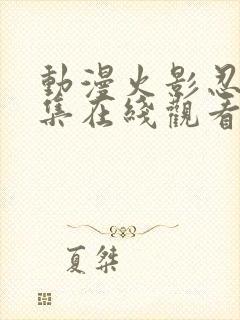 動漫火影忍
集在綫觀看
夏桀